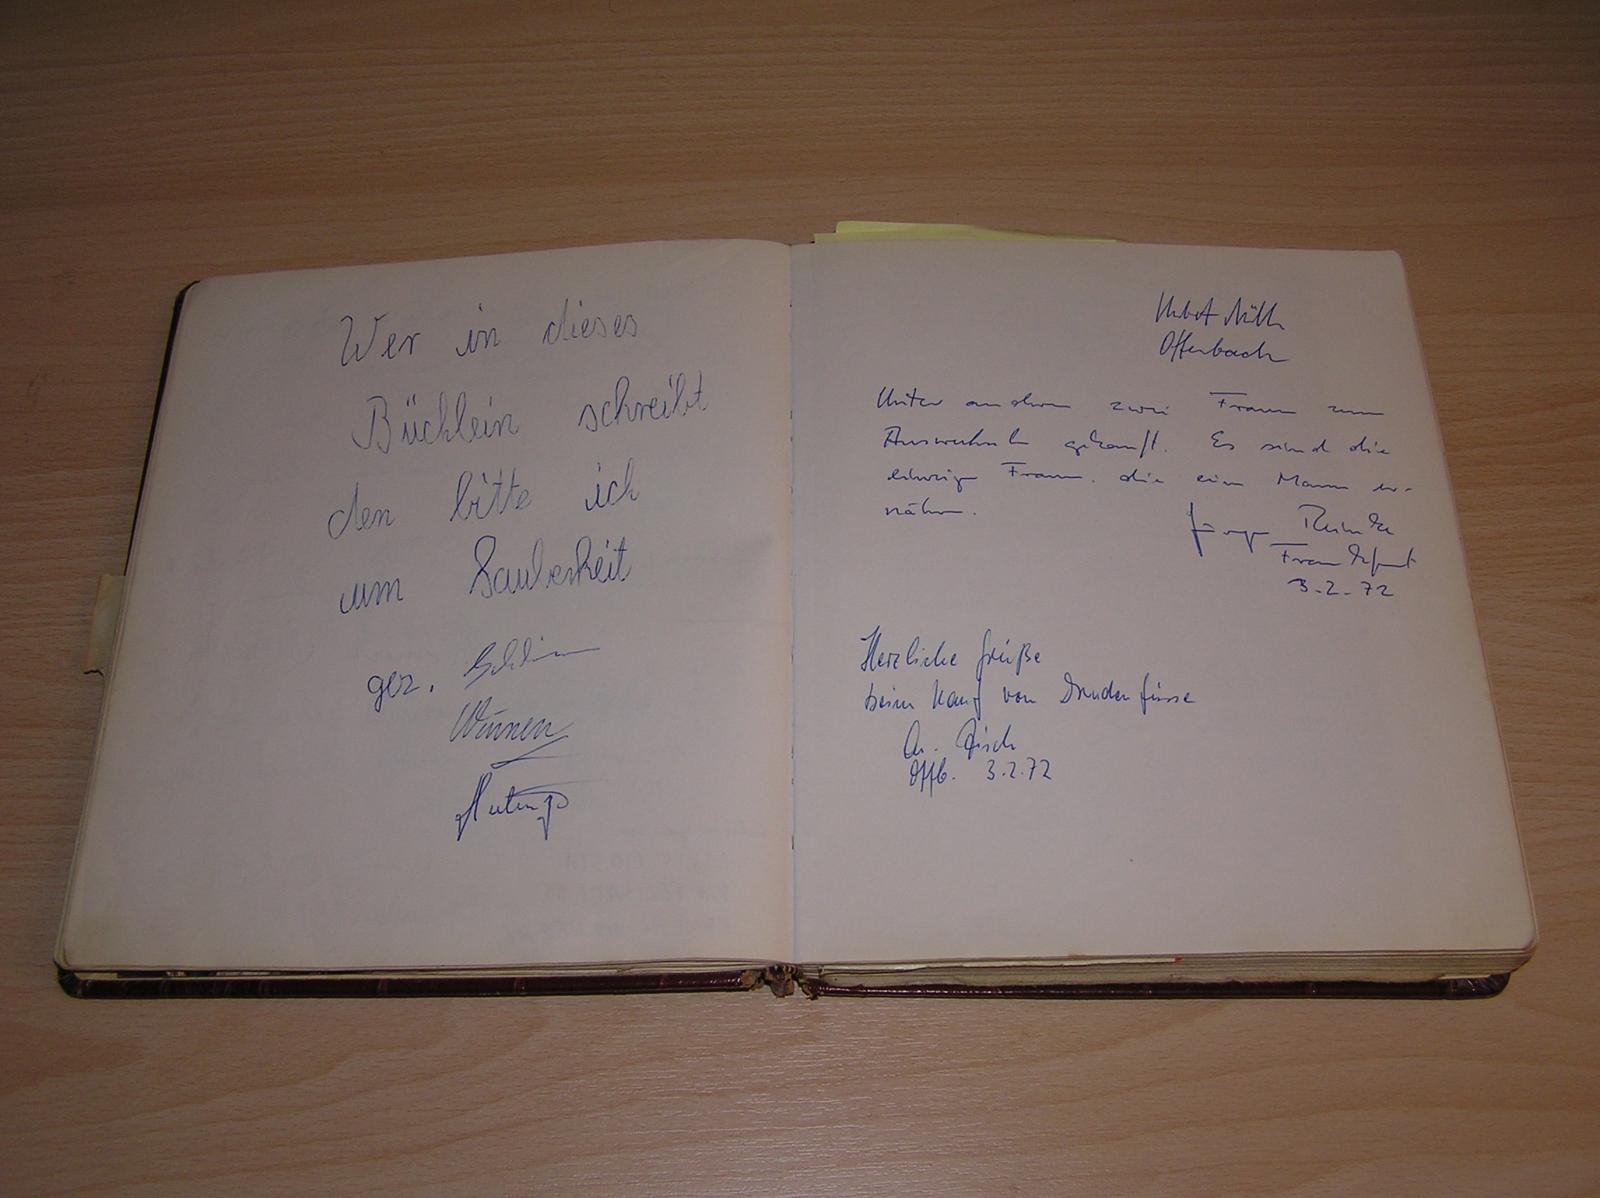 Wer in dieses
Büchlein schreibt
den bitte ich
um Sauberkeit
gez.
Wünnen
Offenbach
Unter andrem zwei Frauen zum
Auswechseln gekauft. Es sind die
einzige Frauen, die ein Mann er-
nähren.
Frankfurt
3.2.72
Herzliche Grüße
beim Kauf von Drudenfüsse
Offb. 3.2.72